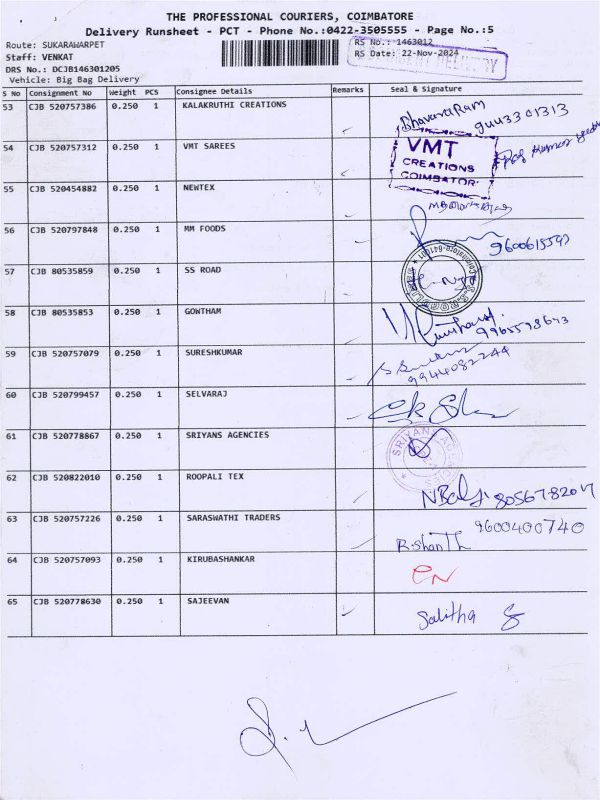 THE PROFESSIONAL COURIERS, COIMBATORE
Delivery Runsheet - PCT - Phone No.:0422-3505555 - Page No.:5
Route: SUKARAWARPET
RS No.: 1463012
Staff: VENKAT
RS Date: 22-Nov-2024
DELIVERY
DRS No.: DCJB146301205
Vehicle: Big Bag Delivery
S No Consignment No Weight PCS Consignee Details Remarks Seal & Signature
53 CJB 520757386 0.250 1 KALAKRUTHI CREATIONS
BhavanaRam
9443301313
54 CJB 520757312 0.250 1 VMT SAREES
VMT
CREATIONS
COIMBATOR
55 CJB 520454882 0.250 1 NEWTEX
56 CJB 520797848 0.250 1 MM FOODS
57 CJB 80535859 0.250 1 SS ROAD
58 CJB 80535853 0.250 1 GOWTHAM
59 CJB 520757079 0.250 1 SURESHKUMAR
9944082244
60 CJB 520799457 0.250 1 SELVARAJ
61 CJB 520778867 0.250 1 SRIYANS AGENCIES
62 CJB 520822010 0.250 1 ROOPALI TEX
63 CJB 520757226 0.250 1 SARASWATHI TRADERS
9600400740
64 CJB 520757093 0.250 1 KIRUBASHANKAR
65 CJB 520778630 0.250 1 SAJEEVAN
Salitha